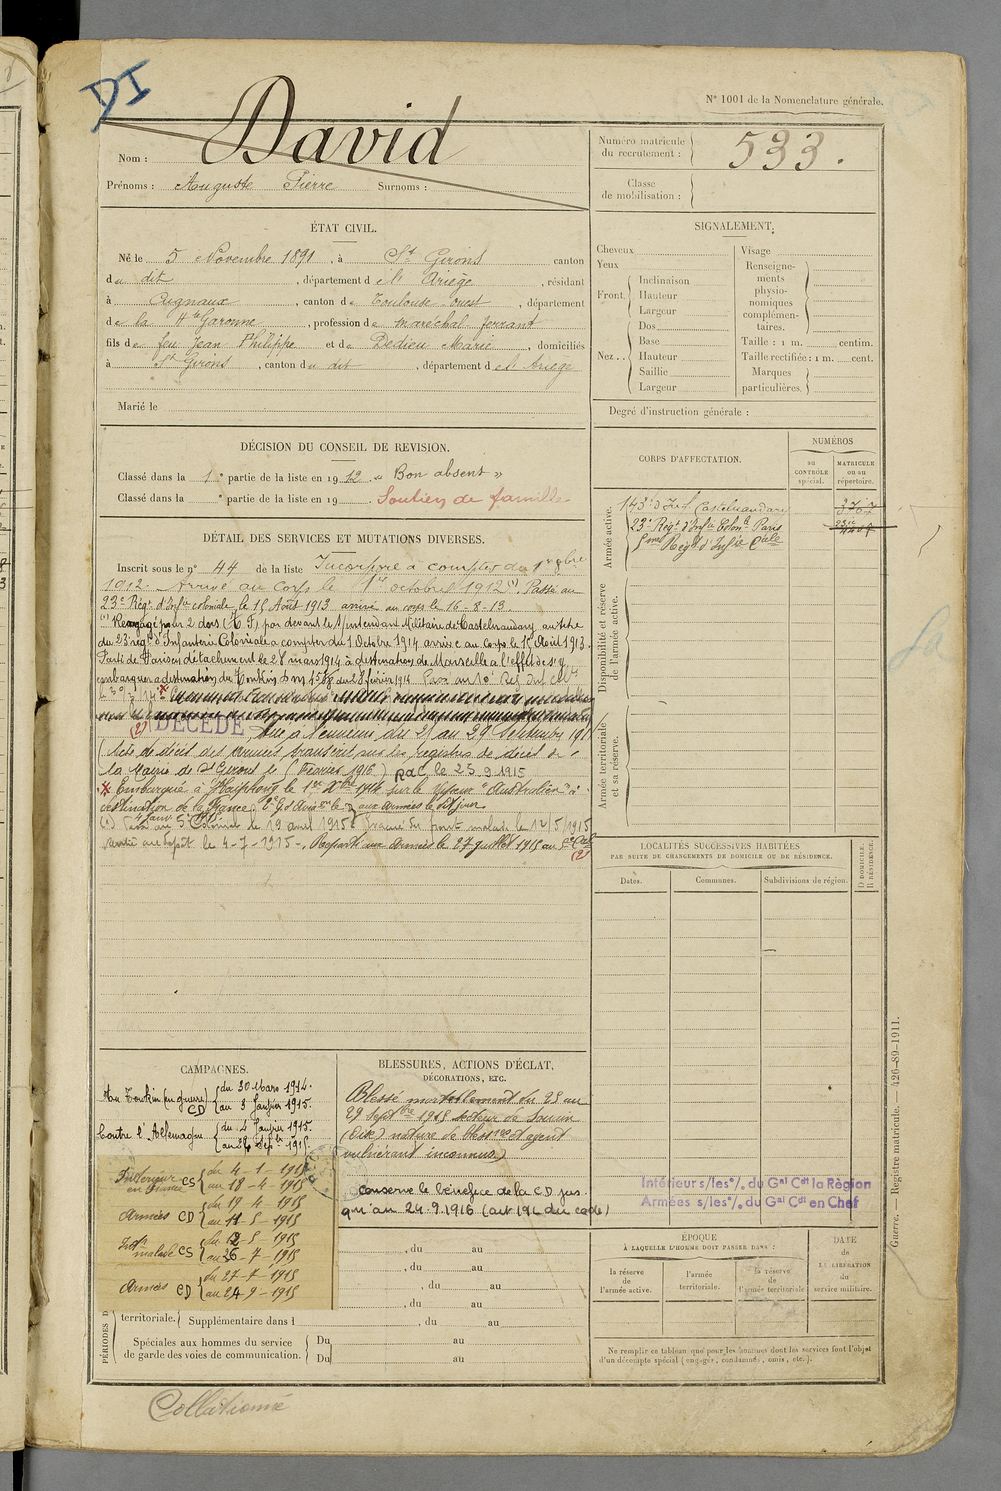 DI
N° 1001 de la Nomenclature générale.
Nom : David
Prénoms : Auguste Pierre Surnoms :
Numéro matricule du recrutement : 533.
Classe de mobilisation :
ÉTAT CIVIL.
Né le 5 Novembre 1891, à St Girons canton
du dit, département de l'Ariège, résidant
à Cugnaux, canton de Toulouse-ouest, département
de la Hte Garonne, profession de maréchal ferrant
fils de feu Jean Philippe et de Dedieu Marie, domiciliés
à St Girons, canton du dit, département de l'Ariège
Marié le
SIGNALEMENT.
Cheveux
Yeux
Front. Inclinaison
Hauteur
Largeur
Nez.. Dos
Base
Hauteur
Saillie
Largeur
Visage
Renseignements physionomiques complémentaires.
Taille : 1 m. centim.
Taille rectifiée : 1 m. cent.
Marques particulières.
Degré d'instruction générale :
DÉCISION DU CONSEIL DE REVISION.
Classé dans la 1e partie de la liste en 1912 « Bon absent »
Classé dans la e partie de la liste en 19 Soutien de famille
CORPS D'AFFECTATION.
NUMÉROS
au CONTRÔLE spécial.
MATRICULE ou au répertoire.
Armée active.
143e d'Inf. Castelnaudary 3767
23e Régt d'Infie Colonle Paris
5me Régt d'Infie Cale
Disponibilité et réserve de l'armée active.
Armée territoriale et sa réserve.
DÉTAIL DES SERVICES ET MUTATIONS DIVERSES.
Inscrit sous le no 44 de la liste Incorporé à compter du 1er 8bre
1912. Arrivé au corps le 1er octobre 1912 (1). Passé au
23e Régt d'Infie coloniale, le 15 Août 1913 arrivé au corps le 16-8-13.
(1) Rengagé pour 2 ans par devant le S/Intendant Militaire de Castelnaudary, au titre
du 23e régt d'Infanterie Coloniale à compter du 1 Octobre 1914 arrivé au Corps le 15 Août 1913.
Parti de Paris en détachement le 28 mars 1914 à destination de Marseille à l'effet de s'y
embarquer à destination du Tonkin
(2) DÉCÉDÉ Tué à l'ennemi du 25 au 29 Septembre 1915
(Acte de décès des armées transcrit sur les registres de décès de
la Mairie de St Girons le Février 1916) RAC le 25 9 1915
* Embarqué à Haïphong le 1er Xbre 1914 sur le vapeur "Australien" à
destination de la France
le 19 avril 1915. Evacué du front malade le 12/5/1915
Rentré au dépôt le 4-7-1915. Reparti aux Armées le 27 juillet 1915 au 5e Cal
(2)
LOCALITÉS SUCCESSIVES HABITÉES
PAR SUITE DE CHANGEMENTS DE DOMICILE OU DE RÉSIDENCE.
Dates.
Communes.
Subdivisions de région.
D DOMICILE. R RÉSIDENCE.
CAMPAGNES.
Au Tonkin (en guerre) CD du 30 Mars 1914.
au 3 Janvier 1915.
Contre l'Allemagne du 4 Janvier 1915
au 24 Sepbre 1915
Intérieur en guerre CS du 4-1-1915
au 18-4-1915
Armées CD du 19-4-1915
au 11-5-1915
Intr malade CS du 12-5-1915
au 26-7-1915
Armées CD du 27-7-1915
au 24-9-1915
BLESSURES, ACTIONS D'ÉCLAT,
DÉCORATIONS, ETC.
Blessé mortellement du 25 au
29 septbre 1915 secteur de Souain
(Oise) nature de bless res et agent
vulnérant inconnus)
Conserve le bénéfice de la CD jus-
qu'au 24.9.1916 (art 19L du code)
Intérieur s/les o/o du Gal Cdt la Règion
Armées s/les o/o du Gal Cdt en Chef
, du au
, du au
, du au
, du au
PÉRIODES D
territoriale. Supplémentaire dans l , du au
Spéciales aux hommes du service de garde des voies de communication. Du au
Du au
ÉPOQUE
À LAQUELLE L'HOMME DOIT PASSER DANS :
la réserve de l'armée active.
l'armée territoriale.
la réserve de l'armée territoriale
DATE de LA LIBÉRATION du service militaire.
Ne remplir ce tableau que pour les hommes dont les services font l'objet
d'un décompte spécial (engagés, condamnés, omis, etc.).
Guerre. — Registre matricule. — 426-89-1911.
Collationné